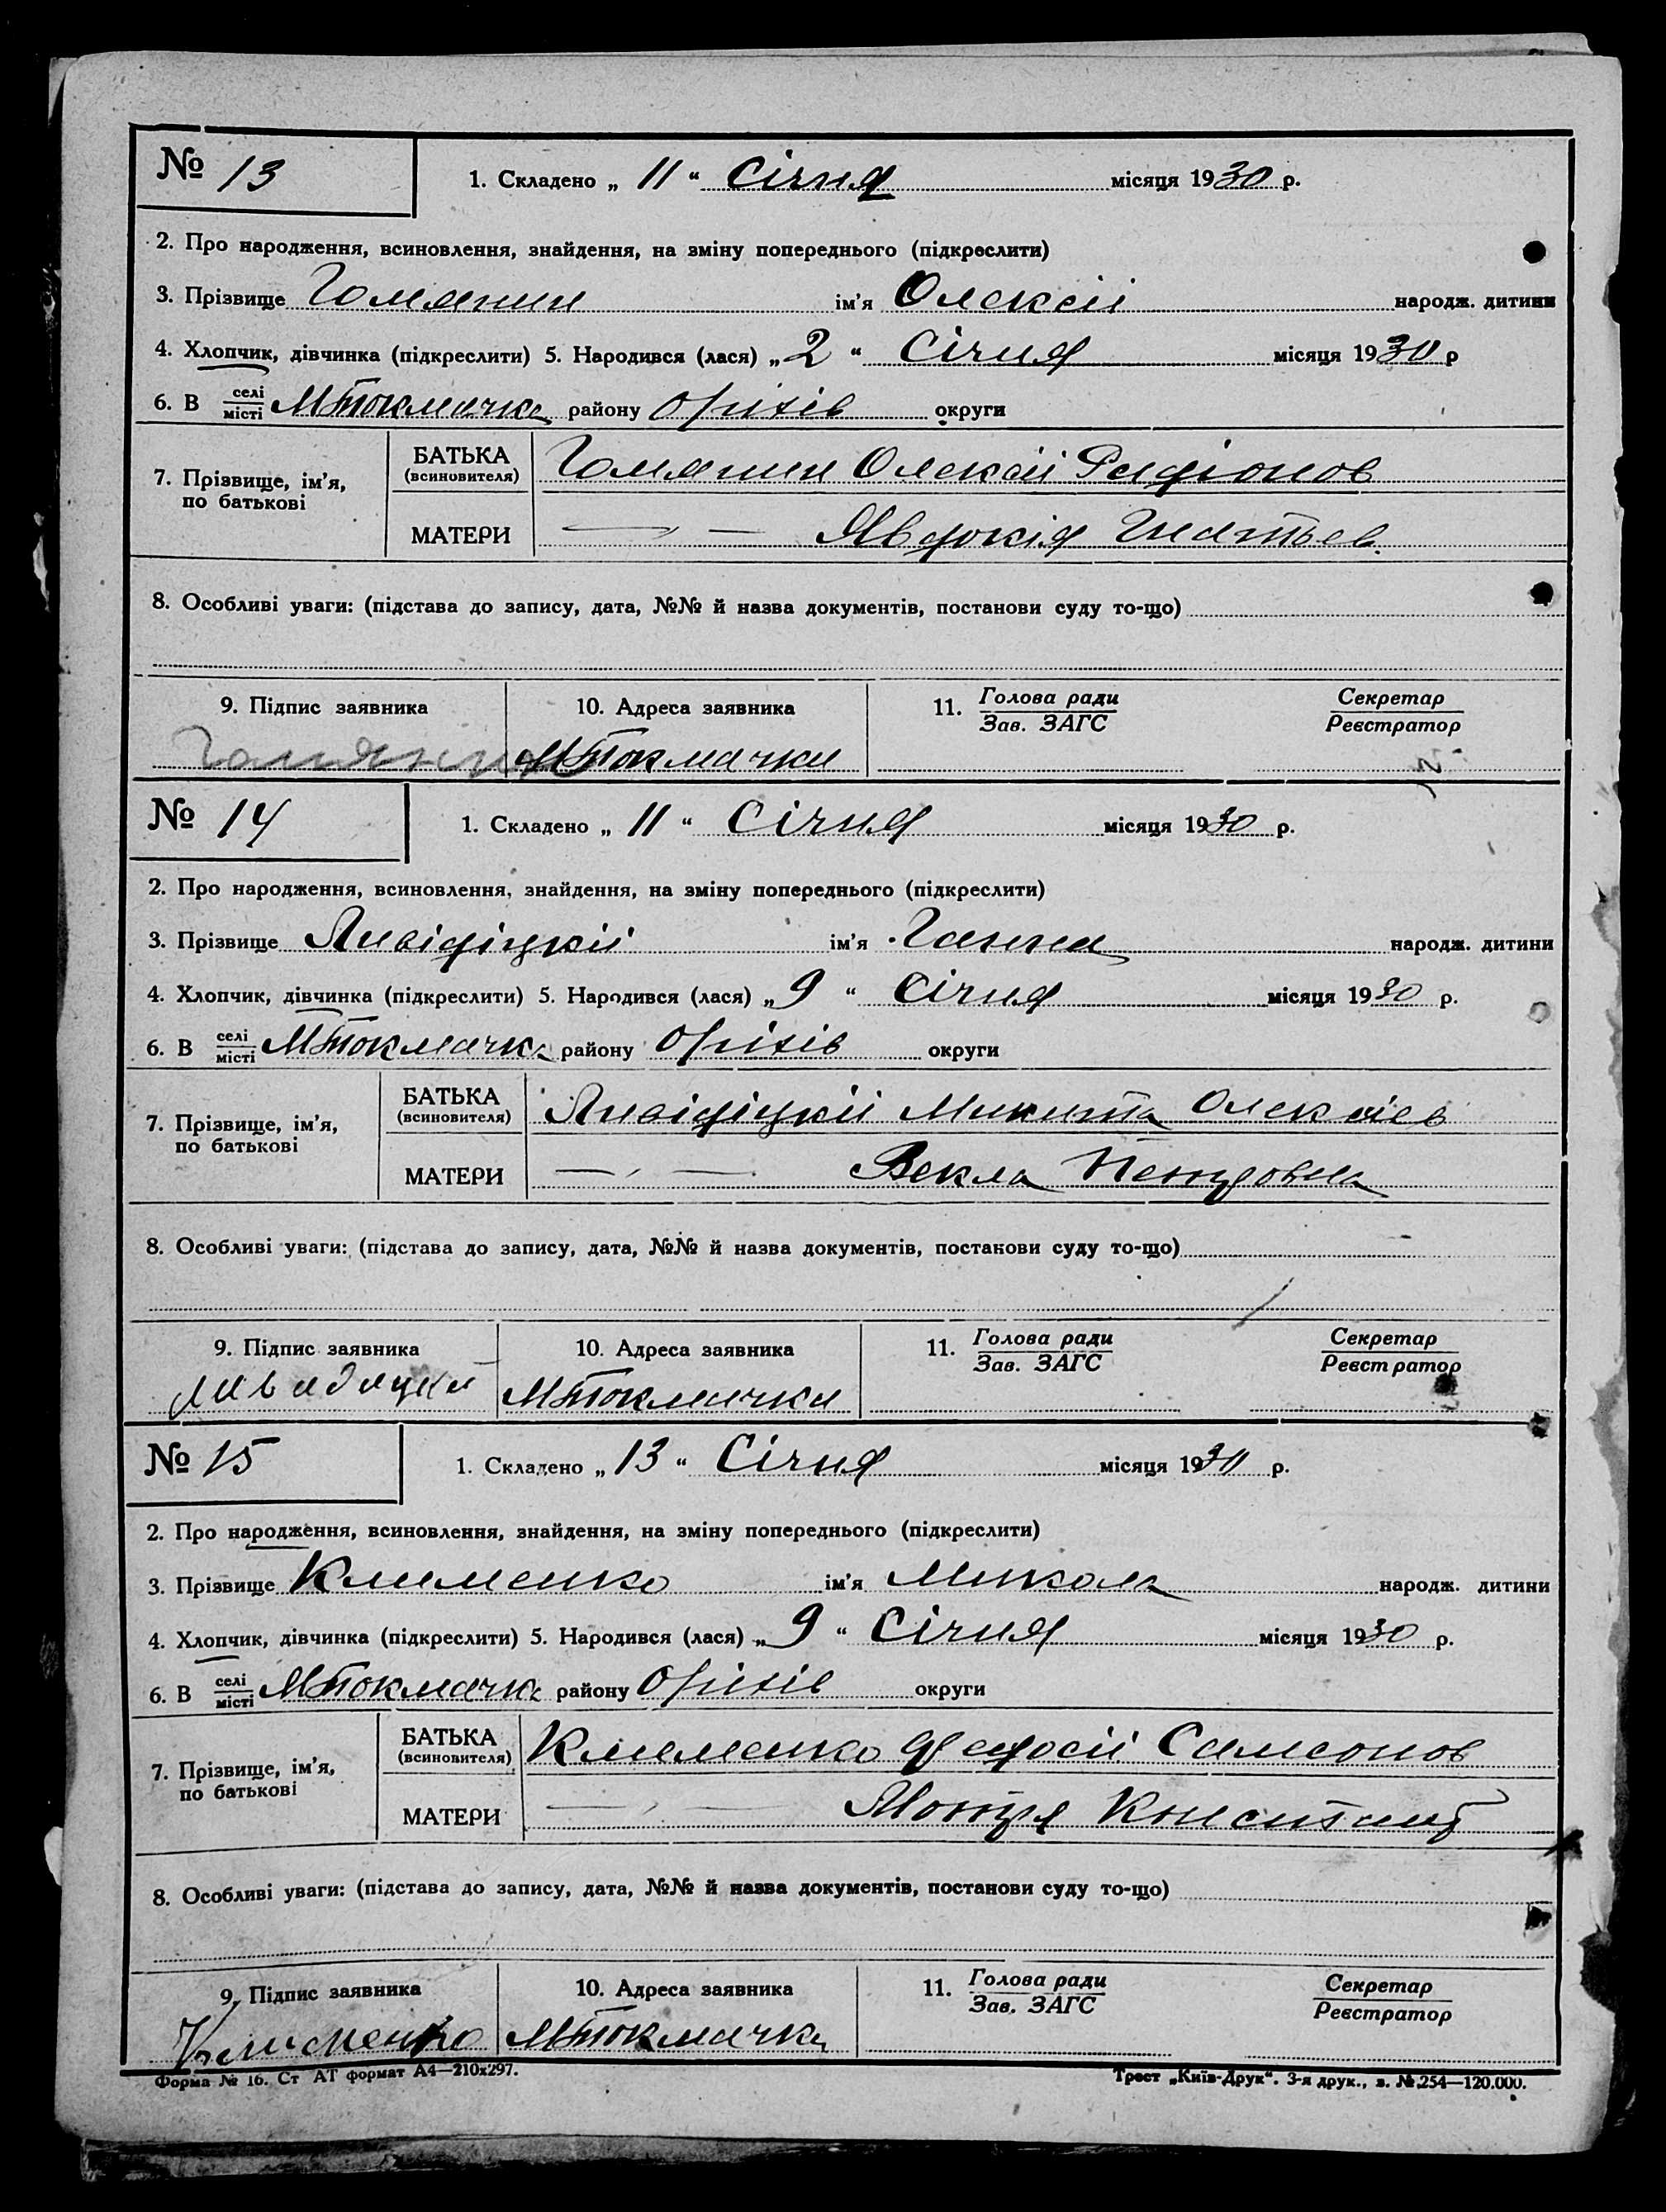 № 13
1. Складено „ 11 “ Січня місяця 1930 р.
2. Про народження, всиновлення, знайдення, на зміну попереднього (підкреслити)
3. Прізвище Голянин ім’я Олексій народж. дитини
4. Хлопчик, дівчинка (підкреслити) 5. Народився (лася) „ 2 “ Січня місяця 1930 р
6. В селі місті МТокмачка району Оріхів округи
7. Прізвище, ім’я, по батькові
БАТЬКА (всиновителя) Голянин Олексій Радіонов
МАТЕРИ — „ — Явдокія Гнатьев.
8. Особливі уваги: (підстава до запису, дата, №№ й назва документів, постанови суду то-що)
9. Підпис заявника 10. Адреса заявника 11. Голова ради Зав. ЗАГС Секретар Реєстратор
МТокмачка
№ 14
1. Складено „ 11 “ Січня місяця 1930 р.
2. Про народження, всиновлення, знайдення, на зміну попереднього (підкреслити)
3. Прізвище Ливідіцкій ім’я Ганна народж. дитини
4. Хлопчик, дівчинка (підкреслити) 5. Народився (лася) „ 9 “ Січня місяця 1930 р.
6. В селі місті МТокмачка району Оріхів округи
7. Прізвище, ім’я, по батькові
БАТЬКА (всиновителя) Ливідіцкій Микита Олексіев
МАТЕРИ — „ — Векла
8. Особливі уваги: (підстава до запису, дата, №№ й назва документів, постанови суду то-що)
9. Підпис заявника 10. Адреса заявника 11. Голова ради Зав. ЗАГС Секретар Реєстратор
Ливидицкий МТокмачка
№ 15
1. Складено „ 13 “ Січня місяця 1930 р.
2. Про народження, всиновлення, знайдення, на зміну попереднього (підкреслити)
3. Прізвище Клименко ім’я Микола народж. дитини
4. Хлопчик, дівчинка (підкреслити) 5. Народився (лася) „ 9 “ Січня місяця 1930 р.
6. В селі місті МТокмачка району Оріхів округи
7. Прізвище, ім’я, по батькові
БАТЬКА (всиновителя) Клименко Федосій Самсонов
МАТЕРИ — „ — Мотря
8. Особливі уваги: (підстава до запису, дата, №№ й назва документів, постанови суду то-що)
9. Підпис заявника 10. Адреса заявника 11. Голова ради Зав. ЗАГС Секретар Реєстратор
Клименко МТокмачка
Форма № 16. Ст АТ формат А4—210х297. Трест „Київ-Друк“. 3-я друк., з. № 254—120.000.